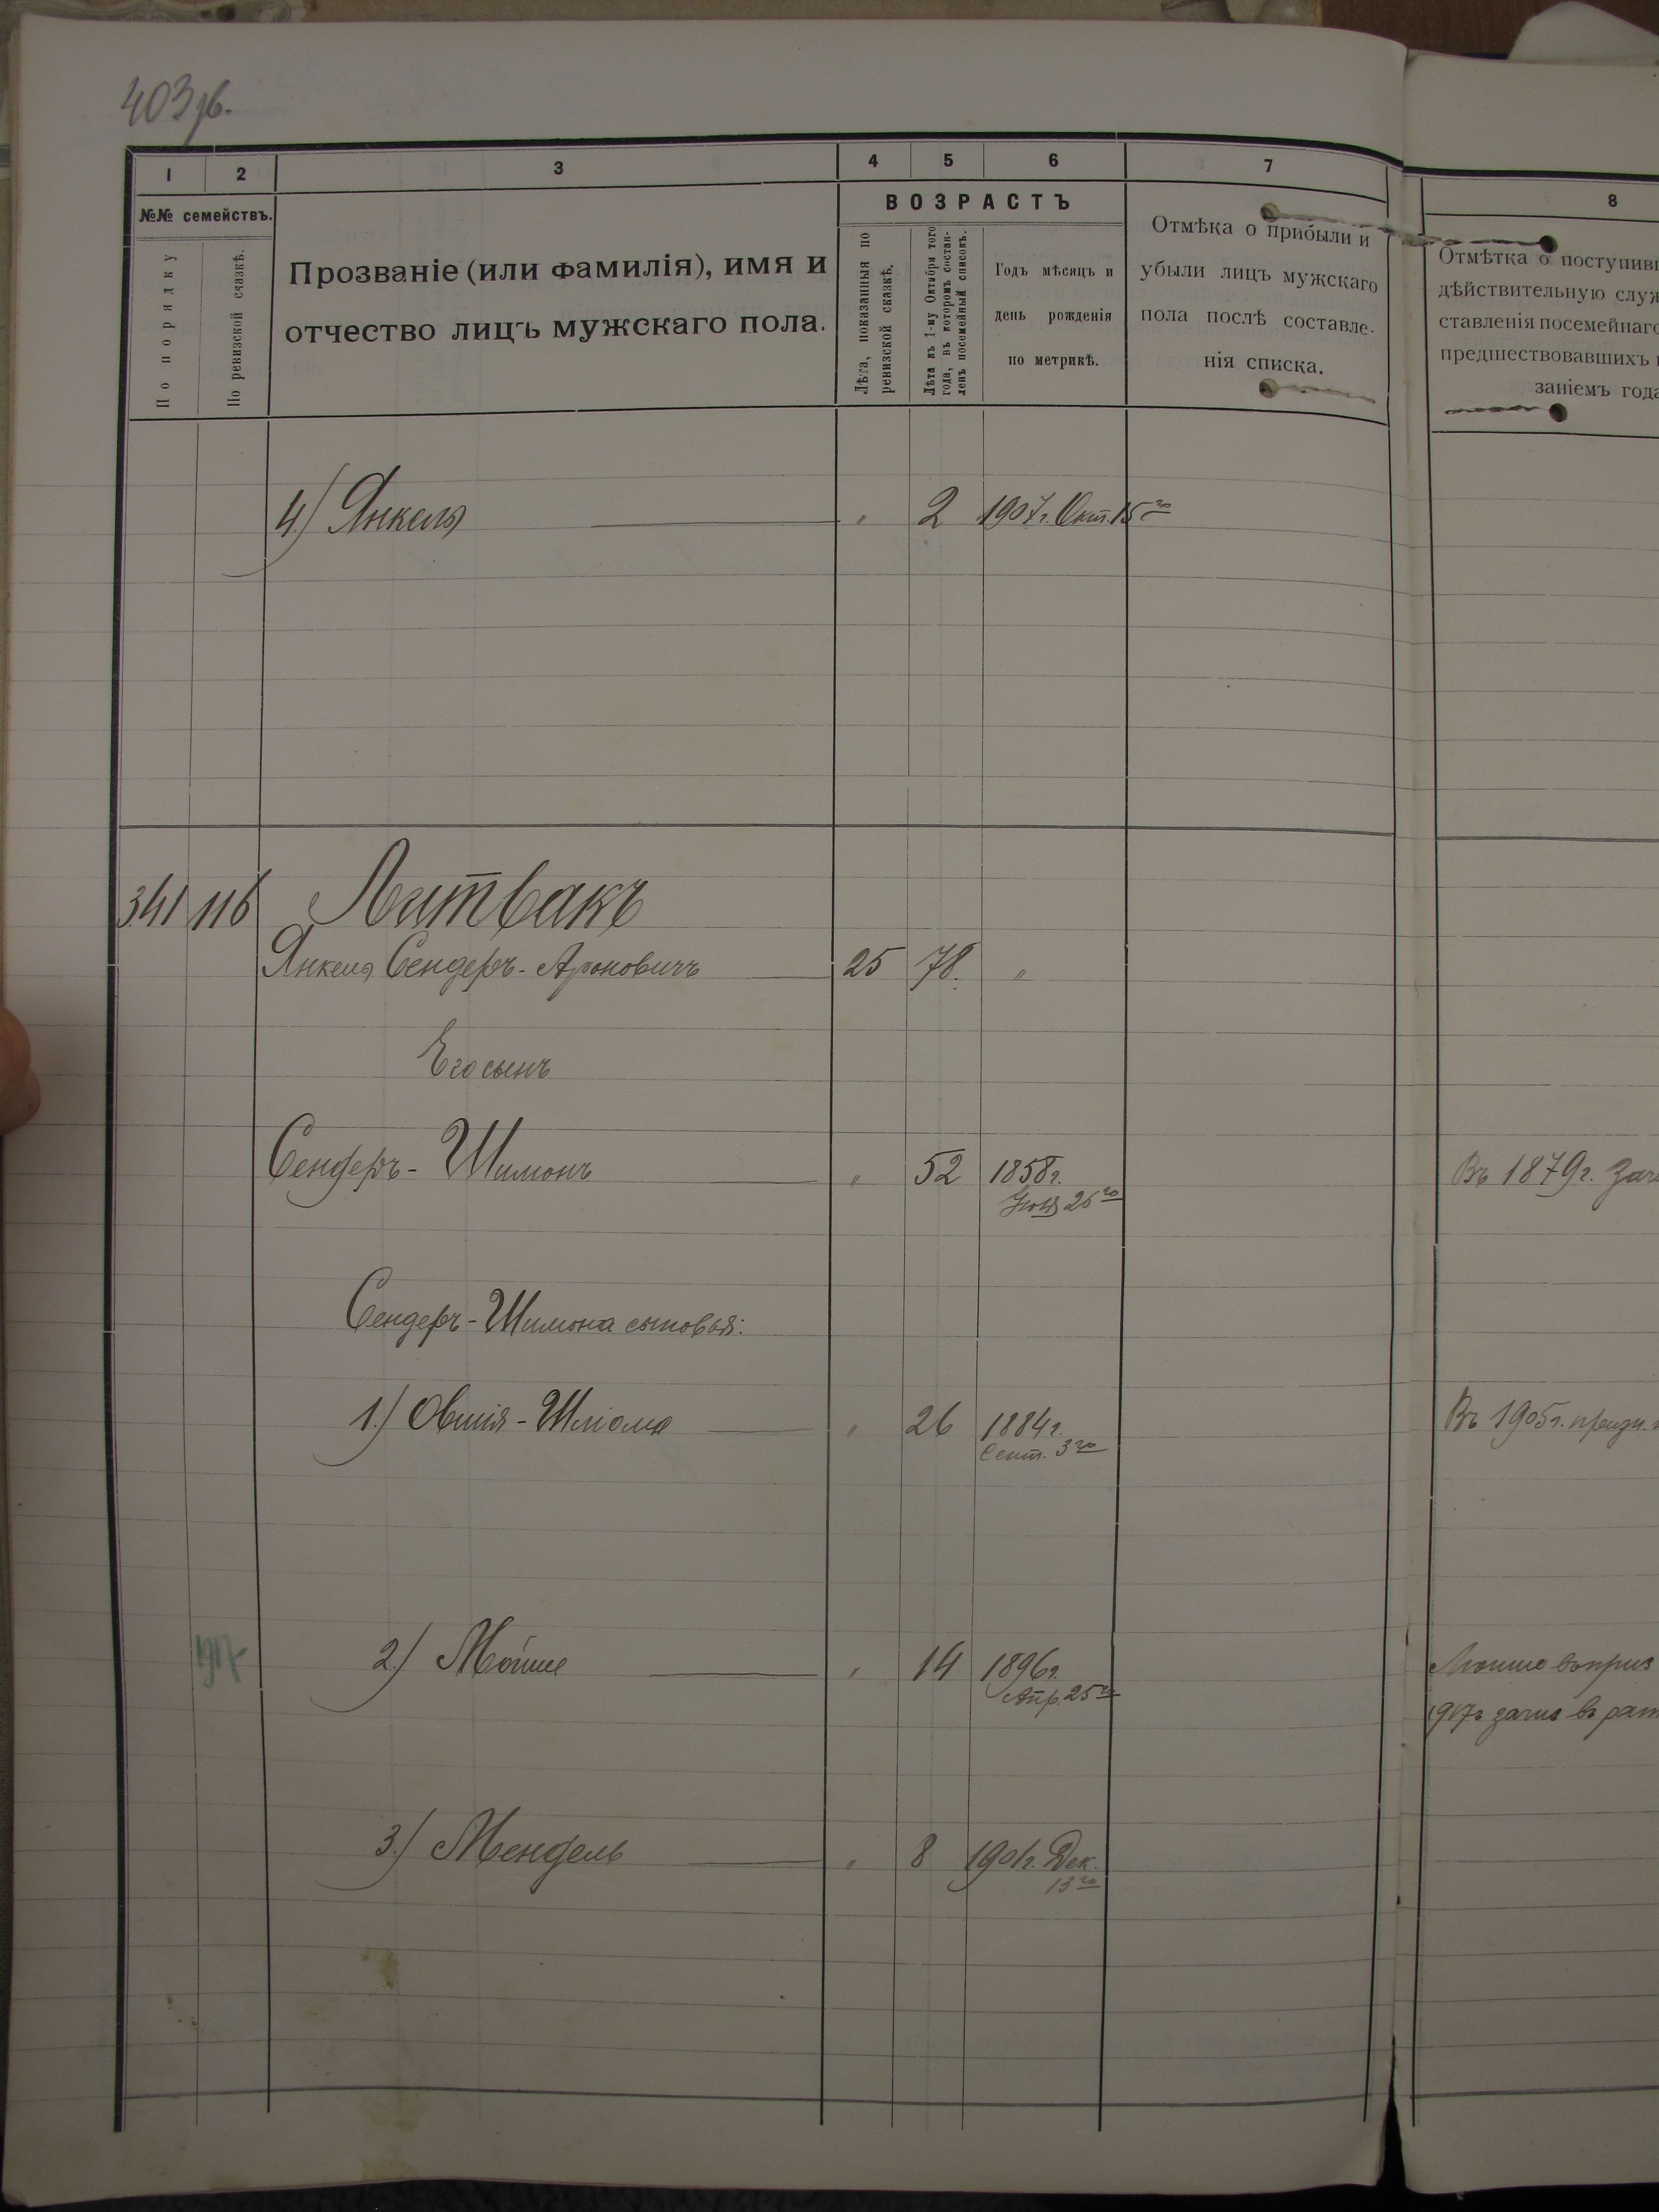 403 об.
1 2 3 4 5 6 7 8
№№ семействъ.
По порядку
По ревизской сказкѣ.
Прозваніе (или фамилія), имя и
отчество лицъ мужскаго пола.
ВОЗРАСТЪ
Лѣта, показанныя по
ревизской сказкѣ.
Лѣта къ 1-му Октября того
года, въ которомъ состав-
ленъ посемейный списокъ.
Годъ мѣсяцъ и
день рожденія
по метрикѣ.
Отмѣка о прибыли и
убыли лицъ мужскаго
пола послѣ составле-
нія списка.
Отмѣтка о поступивш
дѣйствительную служ
ставленія посемейнаго
предшествовавшихъ
заніемъ года
4.) Янкель " 2 1907 г. Окт. 15го
341 116 Литвакъ
Янкель Сендеръ-Ароновичъ 25 78. "
Его сынъ
Сендеръ-Шимонъ " 52 1858 г.
26го
Въ 1879 г. зачи
Сендеръ-Шимона сыновья:
1.) Овшія-Шлiома " 26 1884 г.
Сент. 3го
Въ 1905 г. призн.
1917
2.) Мойше " 14 1896 г.
Апр. 25го
Мойше въ приз
1917 г зачис въ рат
3.) Мендель " 8 1901 г. Дек.
13го